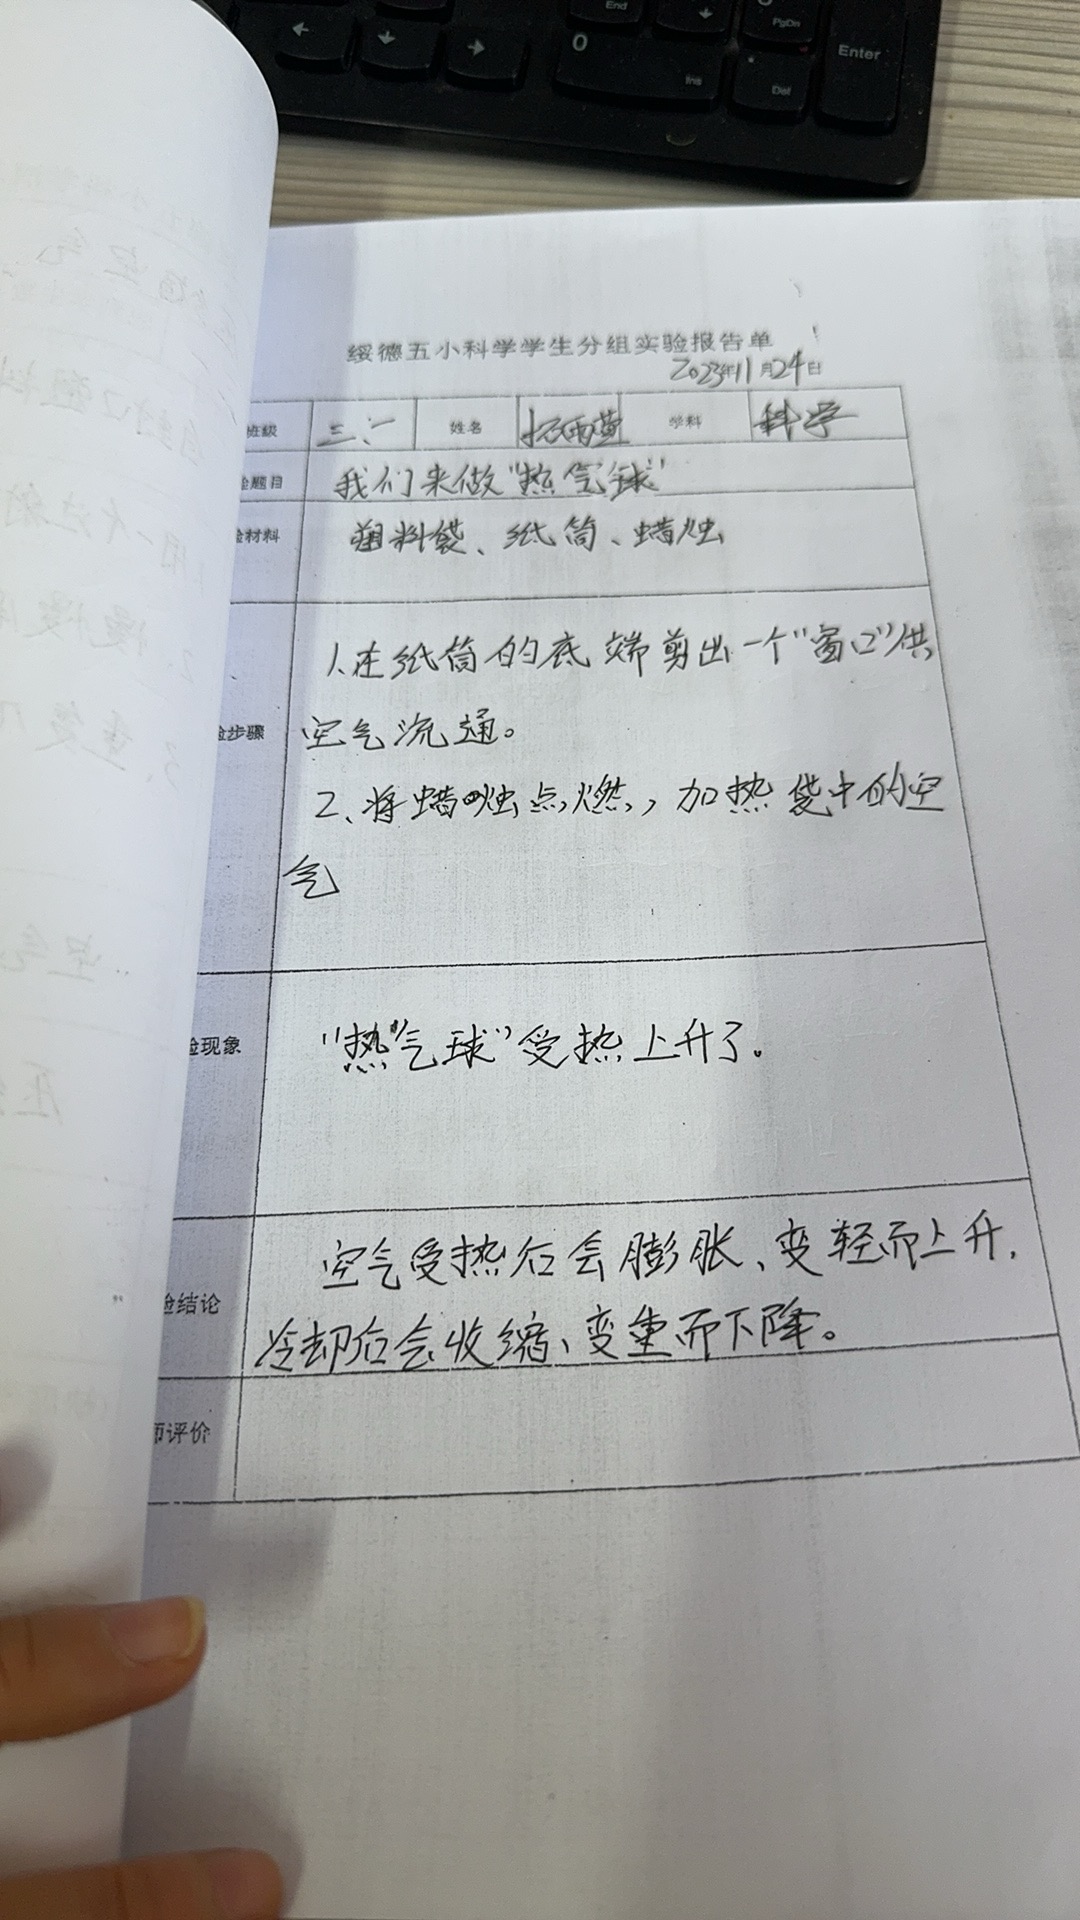 End
PgDn
Enter
0
Ins
Del
绥德五小科学学生分组实验报告单
2023年11月24日
班级 三、一 姓名 学科 科学
验题目 我们来做"热气球"
验材料 塑料袋、纸筒、蜡烛
1、在纸筒的底端剪出一个"窗口"供
验步骤 空气流通。
2、将蜡烛点燃，加热袋中的空
气
验现象 "热气球"受热上升了。
空气受热后会膨胀、变轻而上升，
验结论
冷却后会收缩、变重而下降。
师评价